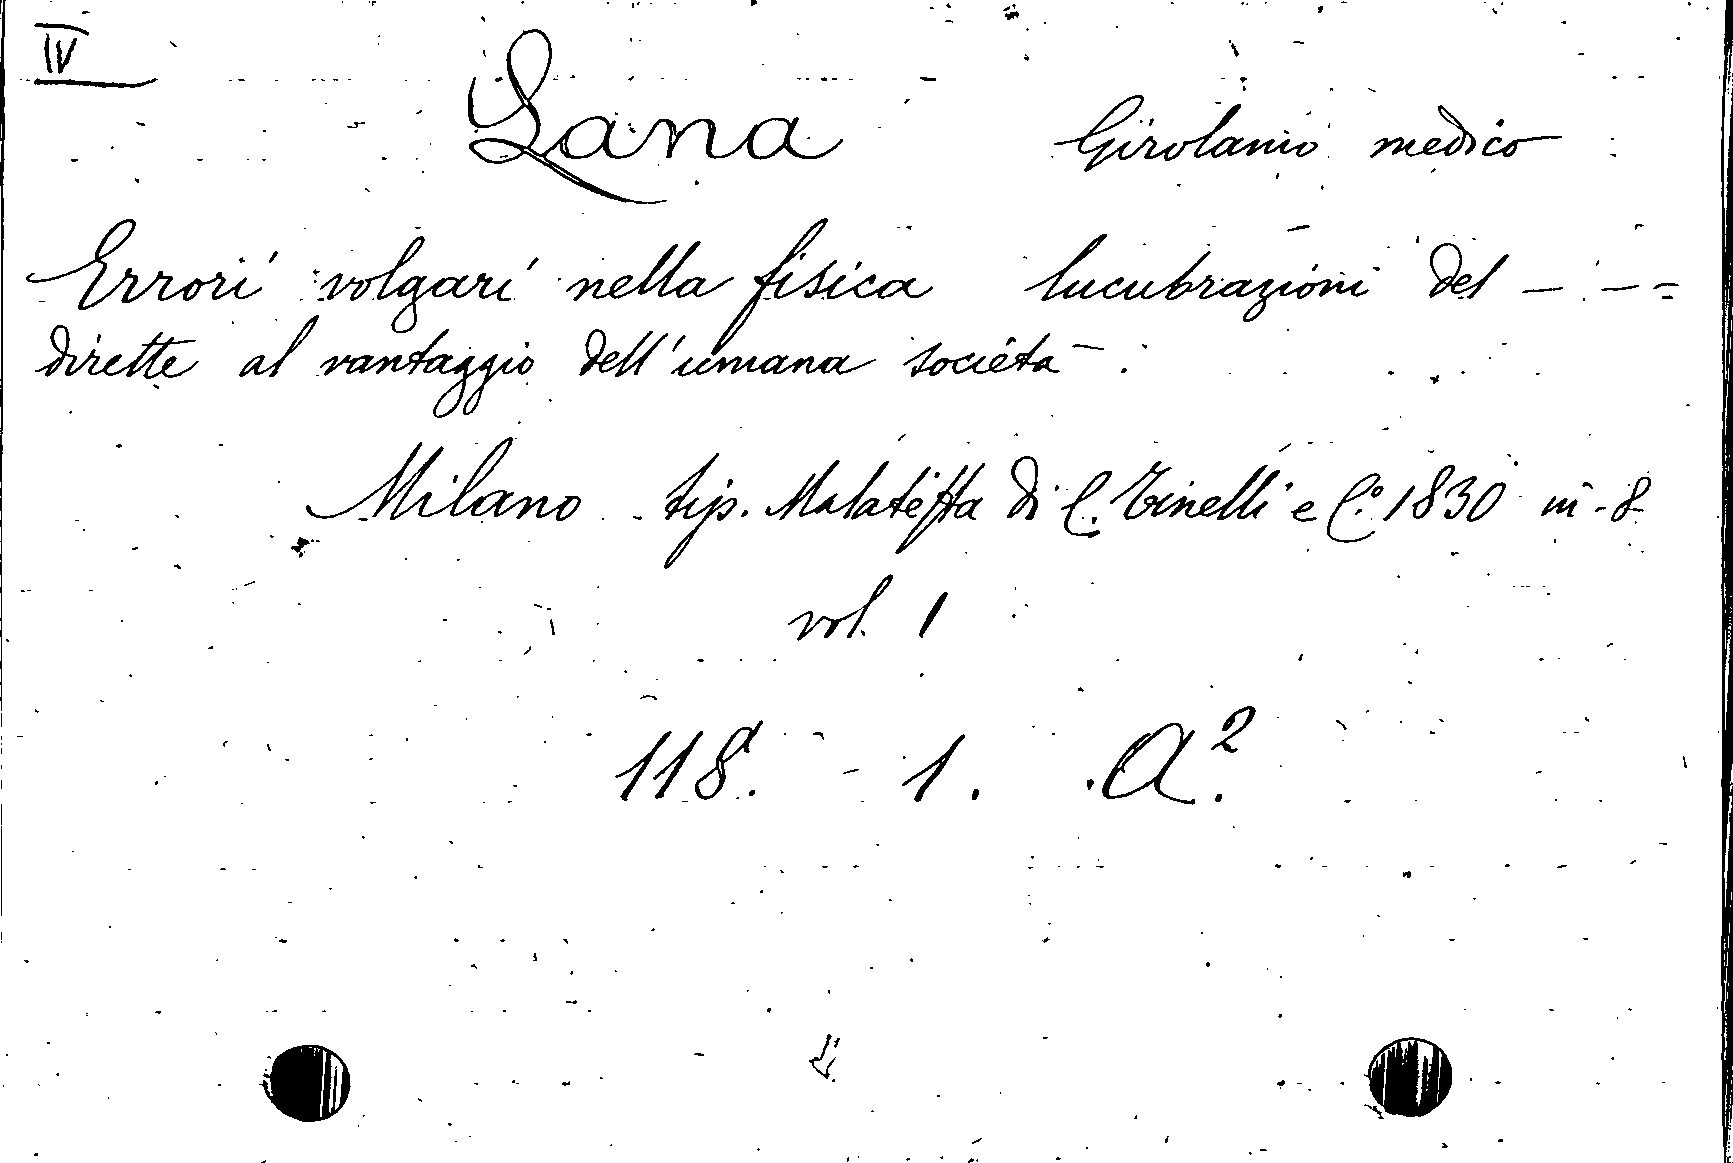 IV
Lana Girolamo medico
Errori volgari nella fisica lucubrazioni del — — =
dirette al vantaggio dell'umana società.
Milano tip. Malatesta di C. Tinelli e C.° 1830 in-8
vol. 1
118. - 1. A².